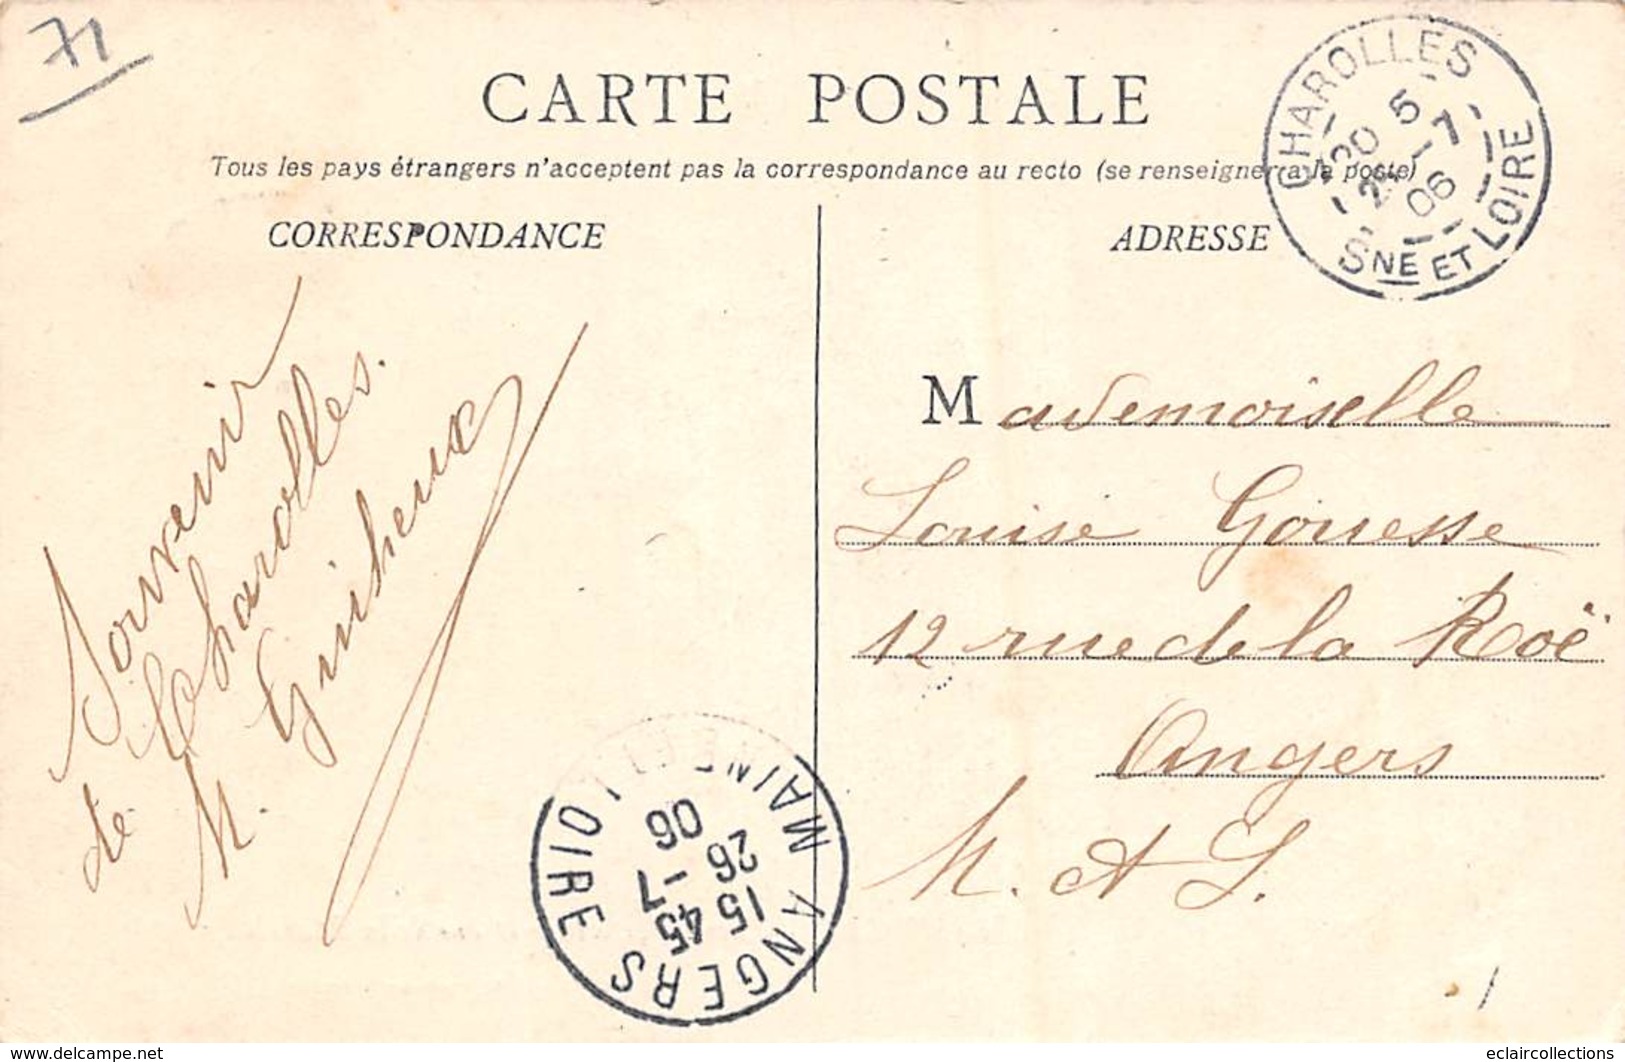 71
CARTE POSTALE
Tous les pays étrangers n'acceptent pas la correspondance au recto (se renseigner a la poste)
CORRESPONDANCE
ADRESSE
CHAROLLES
5
20 - 7
06
SNE ET LOIRE
Souvenir
de Charolles.
M. Guiheux
Mademoiselle
Louise Gouesse
12 rue de la Roë
Angers
M. et L.
ANGERS
MAINE
LOIRE
15 45
26 - 7
06
www.delcampe.net
eclaircollections